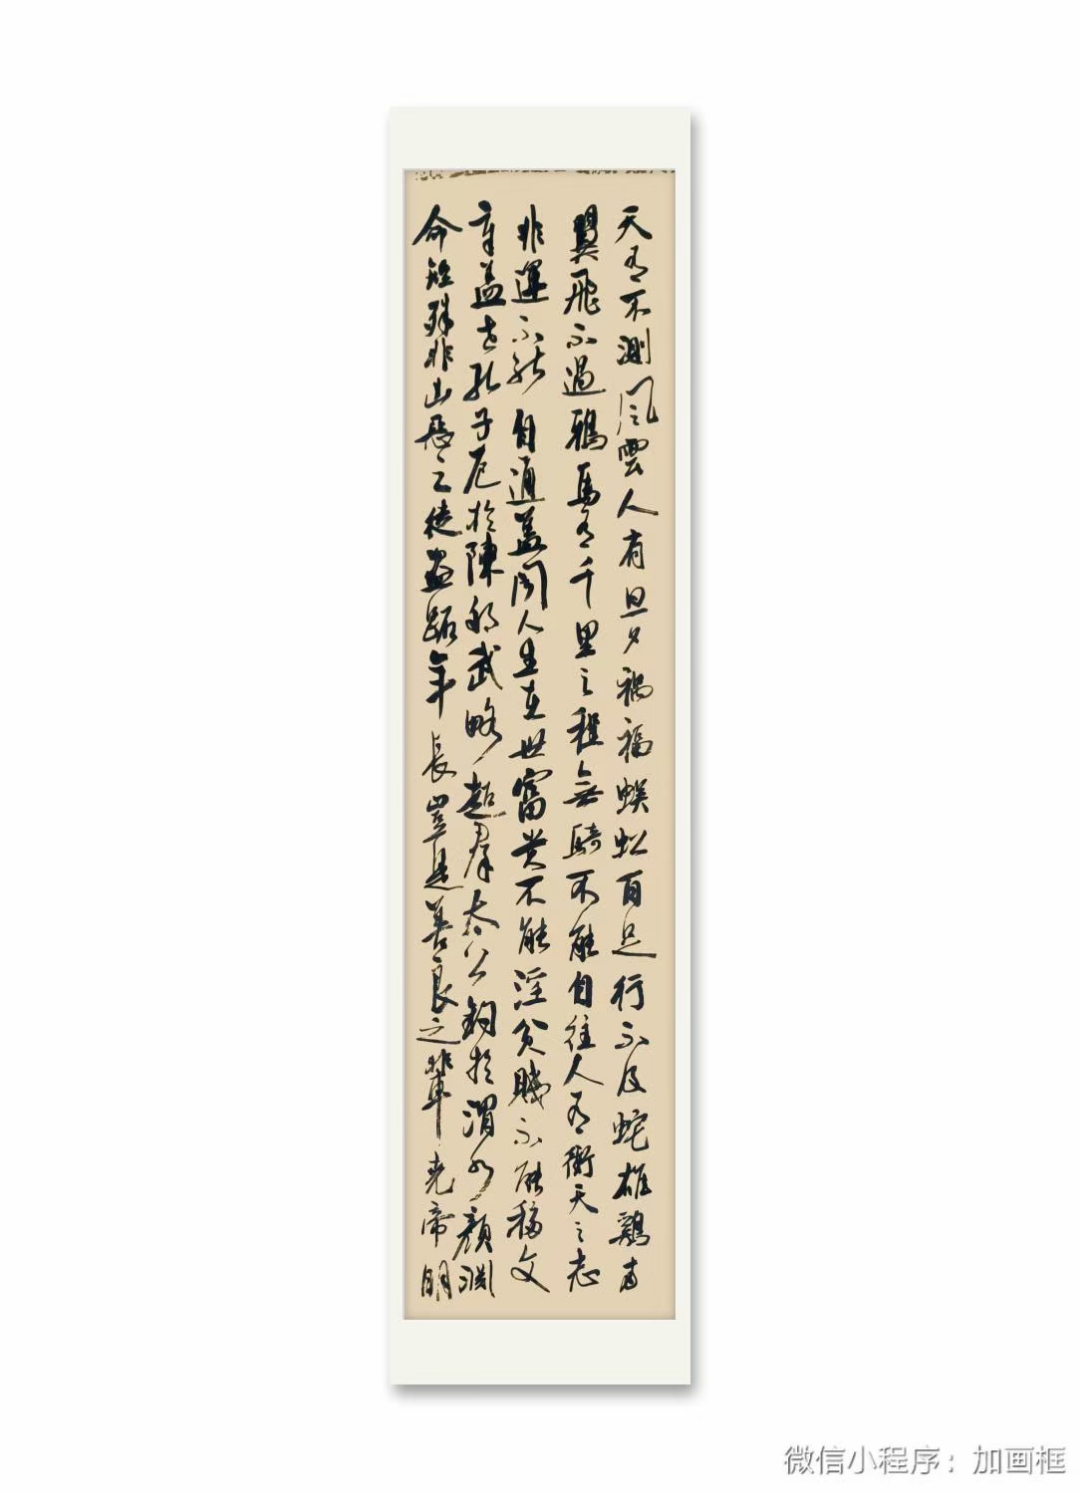 天有不測風雲人有旦夕禍福蜈蚣百足行不及蛇雄鷄有
翼飛不過鴉馬有千里之程無騎不能自往人有衝天之志
非運不能自通蓋聞人生在世富貴不能淫貧賤不能移文
章蓋世孔子厄於陳邦武略超羣太公釣於渭水顏淵
命短殊非凶惡之徒盜跖年長豈是善良之輩堯帝明
微信小程序：加画框